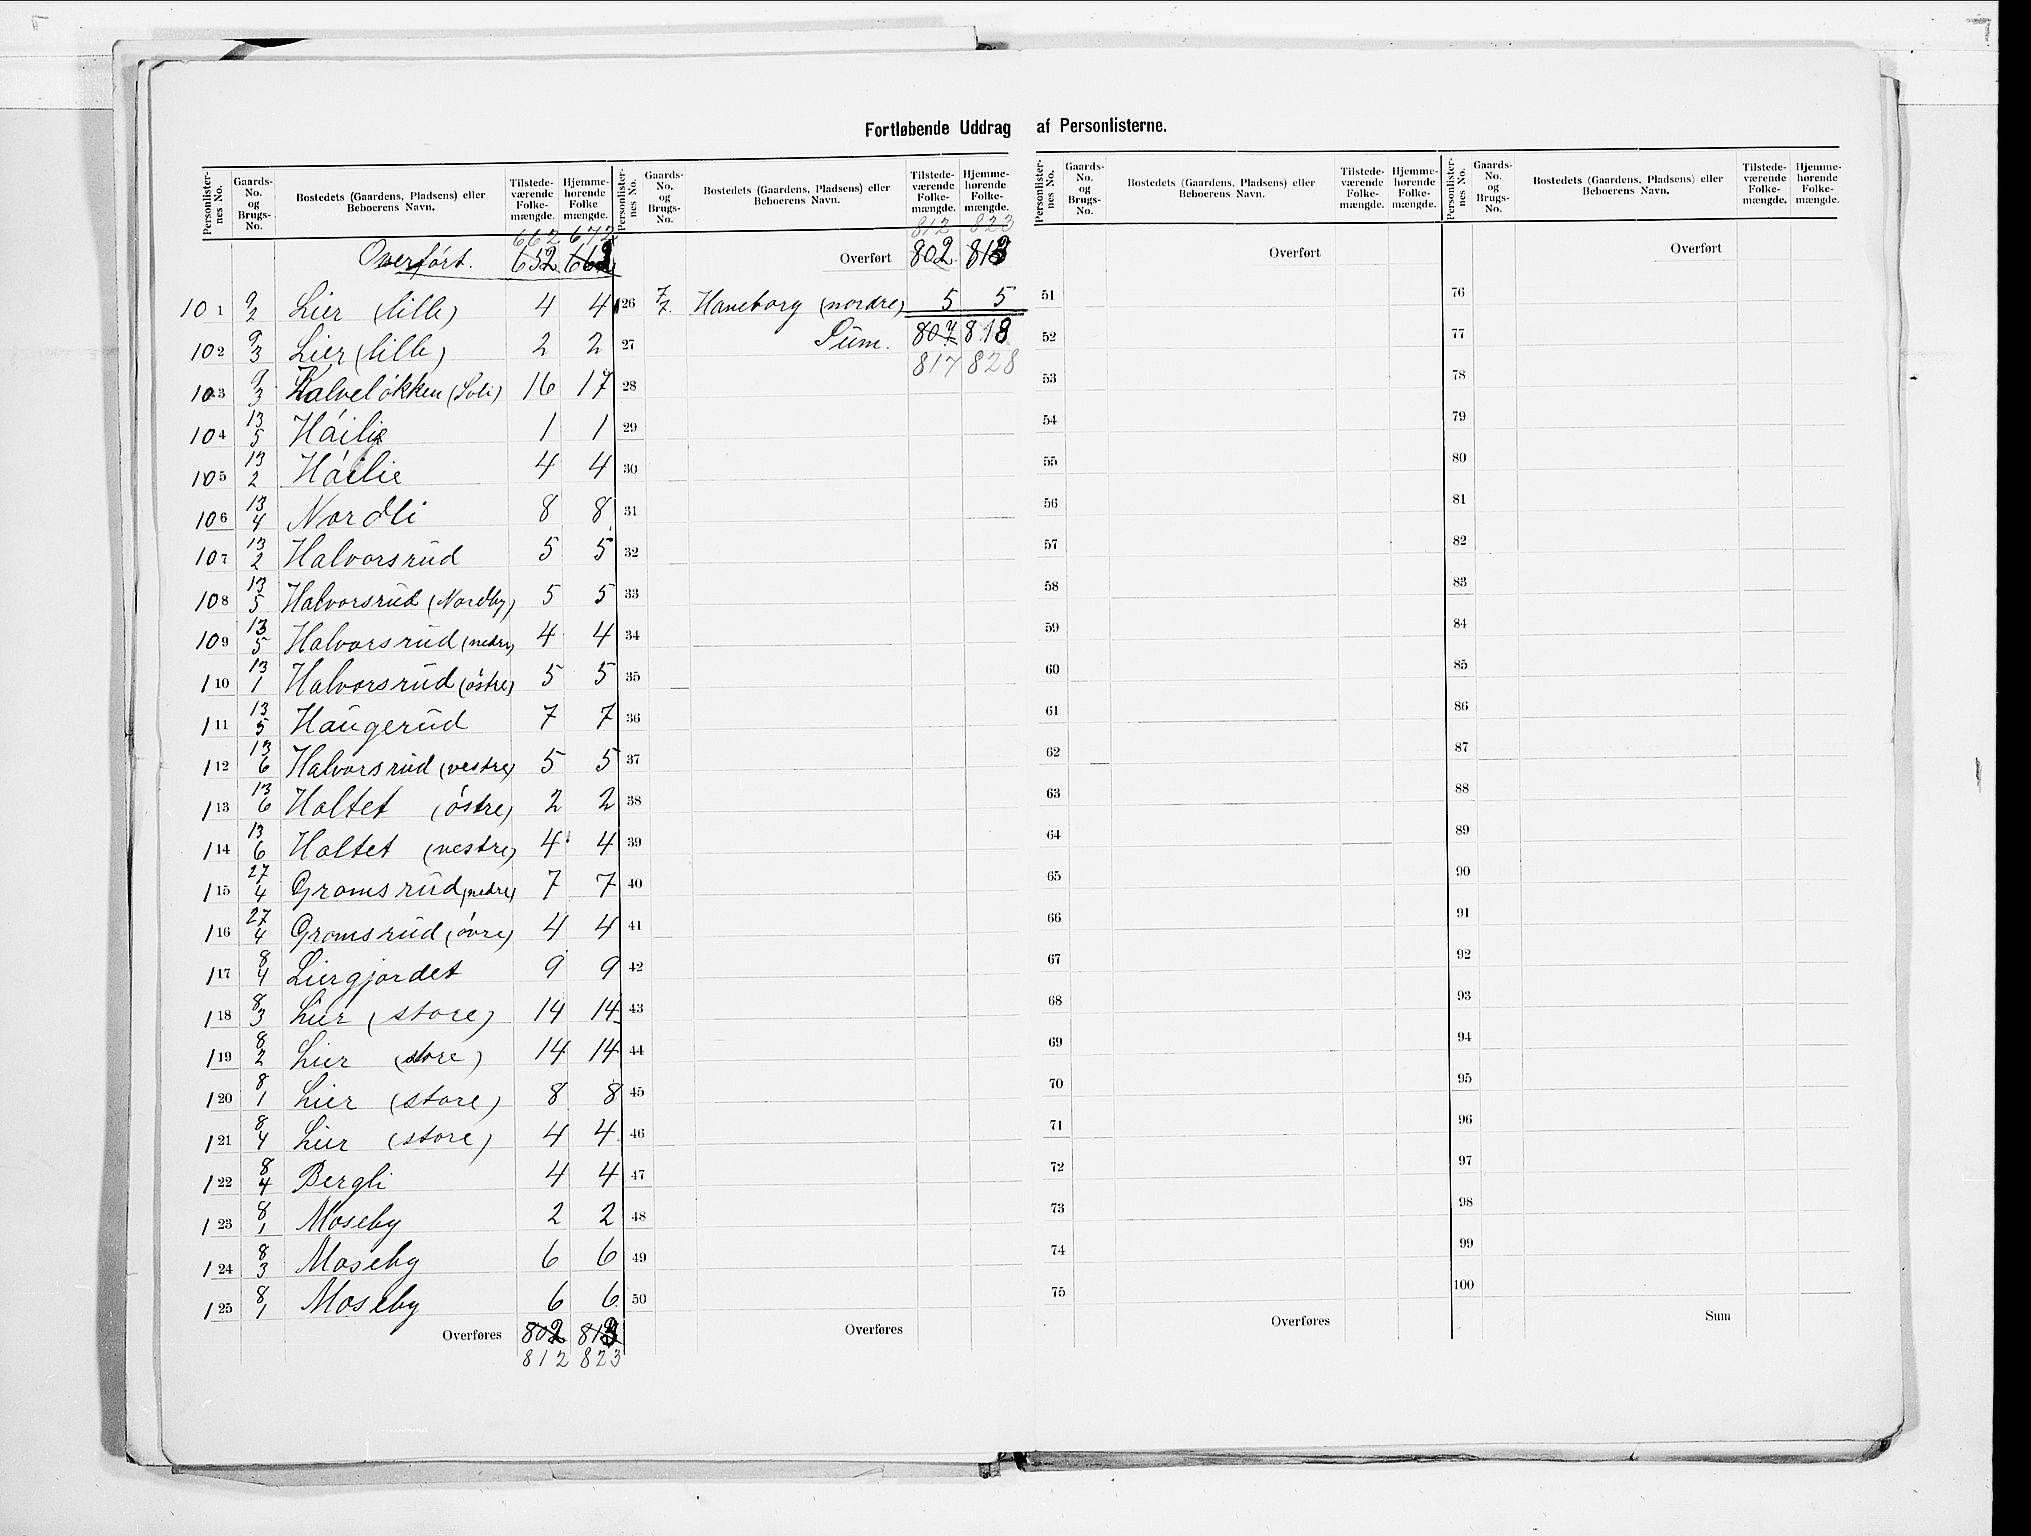 Fortløbende Uddrag af Personlisterne.
Personlister-nes No. Gaards-No. og Brugs-No. Bostedets (Gaardens, Pladsens) eller Beboerens Navn. Tilstede-værende Folke-mængde. Hjemme-hørende Folke mængde.
662 672
Overført. 652 663
101 9/2 Lier (lille) 4 4
102 9/3 Lier (lille) 2 2
103 9/3 Kalveløkken (Soli) 16 17
104 13/5 Høilie 1 1
105 13/2 Høilie 4 4
106 13/4 Nordli 8 8
107 13/2 Halvorsrud 5 5
108 13/5 Halvorsrud (Nordby) 5 5
109 13/5 Halvorsrud (nedre) 4 4
110 13/1 Halvorsrud (østre) 5 5
111 13/5 Haugerud 7 7
112 13/6 Halvorsrud (vestre) 5 5
113 13/6 Holtet (østre) 2 2
114 13/6 Holtet (vestre) 4 4
115 27/4 Gromsrud (nedre) 7 7
116 27/4 Gromsrud (øvre) 4 4
117 8/4 Liergjordet 9 9
118 8/3 Lier (store) 14 14
119 8/2 Lier (store) 14 14
120 8/1 Lier (store) 8 8
121 8/4 Lier (store) 4 4
122 8/4 Bergli 4 4
123 8/1 Moseby 2 2
124 8/3 Moseby 6 6
125 8/1 Moseby 6 6
Overføres 802 813
812 823
Personlister-nes No. Gaards-No. og Brugs-No. Bostedets (Gaardens, Pladsens) eller Beboerens Navn. Tilstede-værende Folke-mængde. Hjemme-hørende Folke-mængde.
812 823
Overført 802 813
126 7/7. Haneborg (nordre) 5 5
27 Sum. 807 818
817 828
28
29
30
31
32
33
34
35
36
37
38
39
40
41
42
43
44
45
46
47
48
49
50
Overføres
Personlister-nes No. Gaards-No. og Brugs-No. Bostedets (Gaardens, Pladsens) eller Beboerens Navn. Tilstede-værende Folke-mængde. Hjemme-hørende Folke-mængde.
Overført
51
52
53
54
55
56
57
58
59
60
61
62
63
64
65
66
67
68
69
70
71
72
73
74
75
Overføres
Personlister-nes No. Gaards-No. og Brugs-No. Bostedets (Gaardens, Pladsens) eller Beboerens Navn. Tilstede-værende Folke-mængde. Hjemme-hørende Folke-mængde.
Overført
76
77
78
79
80
81
82
83
84
85
86
87
88
89
90
91
92
93
94
95
96
97
98
99
100
Sum